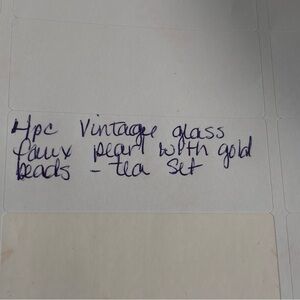 4pc Vintage glass
faux pearl with gold
beads - tea set